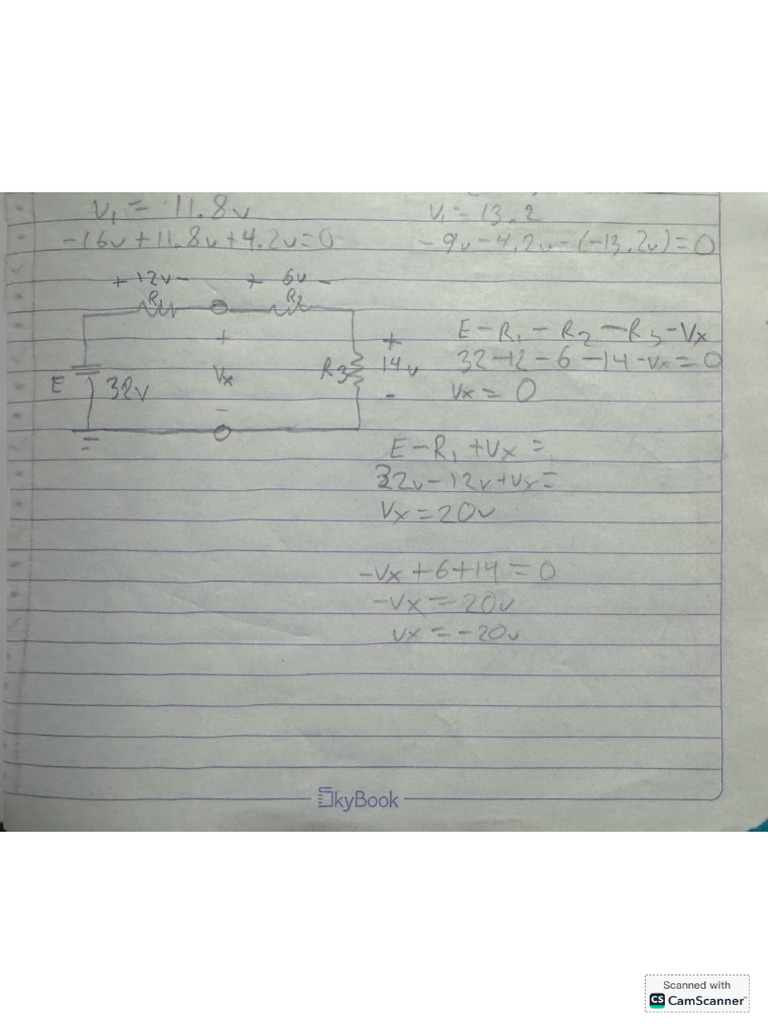 V₁ = 11.8v
V₁ = 13.2
-16v+11.8v+4.2v=0
-9v-4.2v-(-13.2v)=0
+ 12v -
+ 6v -
R₁
R₂
E
32v
+
Vx
-
R3
+
14v
-
E-R₁-R₂-R₃-Vx
32-12-6-14-vx=0
Vx=0
E-R₁+Vx=
32v-12v+vx=
Vx=20v
-Vx+6+14=0
-Vx=20v
vx=-20v
SkyBook
Scanned with
CS CamScanner